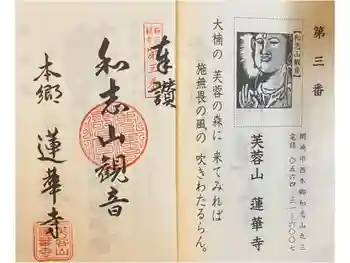 第三番
【和志山観音】
岡崎市西本郷町和志山
電話 〇五六四
芙蓉山 蓮華寺
大楠の 芙蓉の森に 来てみれば
施無畏の風の 吹きわたるらん。
奉讃
和志山観音
本郷 蓮華寺